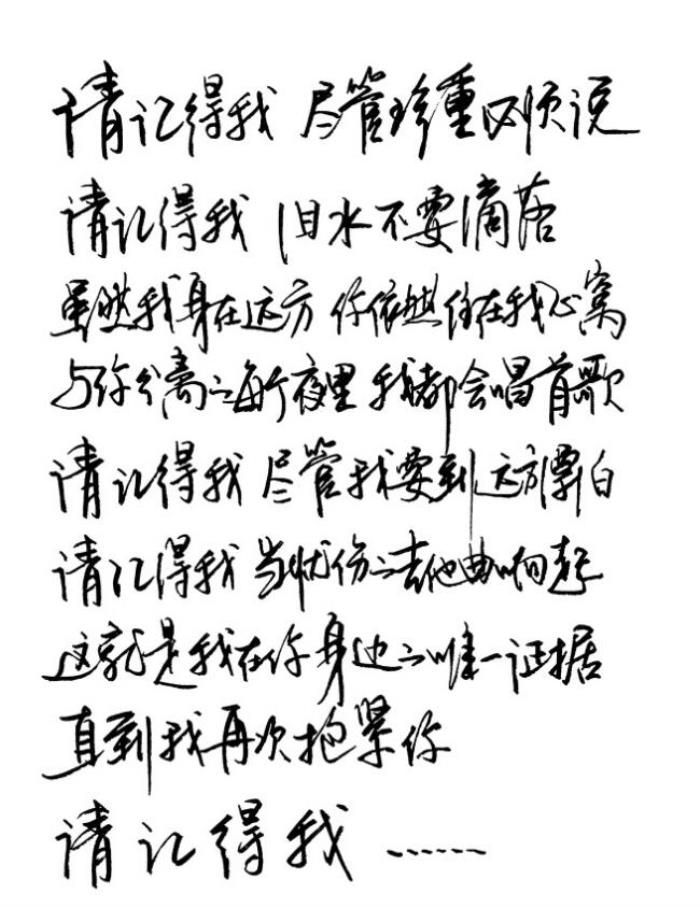 请记得我 尽管珍重必须说
请记得我 泪水不要滴落
虽然我身在远方 你依然住在我心窝
与你分离之每个夜里 我都会唱首歌
请记得我 尽管我要到远方漂泊
请记得我 当忧伤之吉他曲响起
这就是我在你身边之唯一证据
直到我再次抱紧你
请记得我……